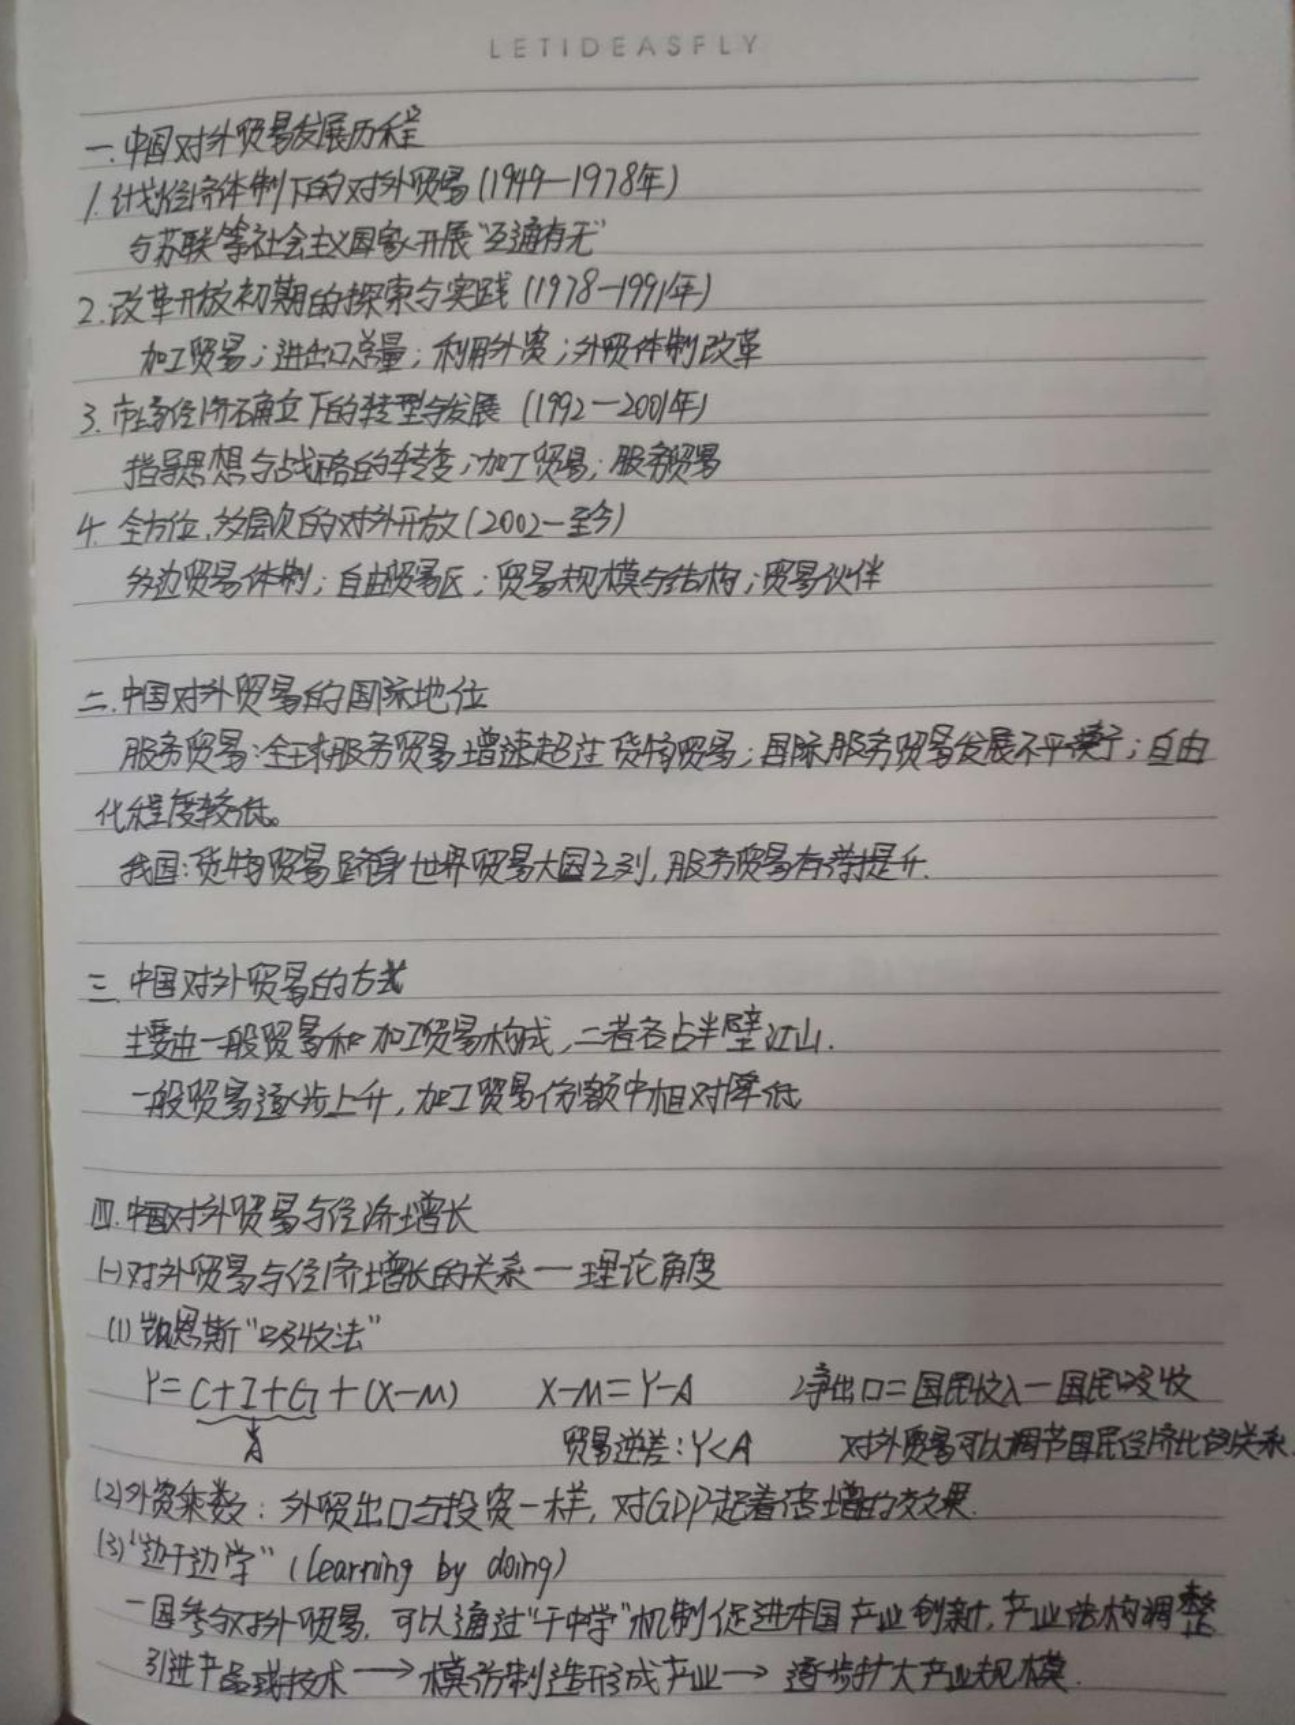 LETIDEASFLY
一.中国对外贸易发展历程
1.计划经济体制下的对外贸易(1949—1978年)
与苏联等社会主义国家开展“互通有无”
2.改革开放初期的探索与实践(1978-1991年)
加工贸易;进出口总量;利用外资;外贸体制改革
3.市场经济确立下的转型与发展(1992—2001年)
指导思想与战略的转变;加工贸易;服务贸易
4.全方位,多层次的对外开放(2002—至今)
多边贸易体制;自由贸易区;贸易规模与结构;贸易伙伴
二.中国对外贸易的国际地位
服务贸易:全球服务贸易增速超过货物贸易;国际服务贸易发展不平衡;自由
化程度较低。
我国:货物贸易跻身世界贸易大国之列,服务贸易有待提升.
三.中国对外贸易的方式
主要由一般贸易和加工贸易构成,二者各占半壁江山.
一般贸易逐步上升,加工贸易份额中相对降低
四.中国对外贸易与经济增长
(一)对外贸易与经济增长的关系—理论角度
(1)凯恩斯“吸收法”
Y=C+I+G+(X-M) X-M=Y-A 净出口=国民收入-国民吸收
A 贸易逆差:Y<A 对外贸易可以调节国民经济比例关系
(2)外资乘数:外贸出口与投资一样,对GDP起着倍增的效果.
(3)“边干边学”(learning by doing)
一国参与对外贸易,可以通过“干中学”机制促进本国产业创新,产业结构调整
引进产品或技术→模仿制造形成产业→逐步扩大产业规模.